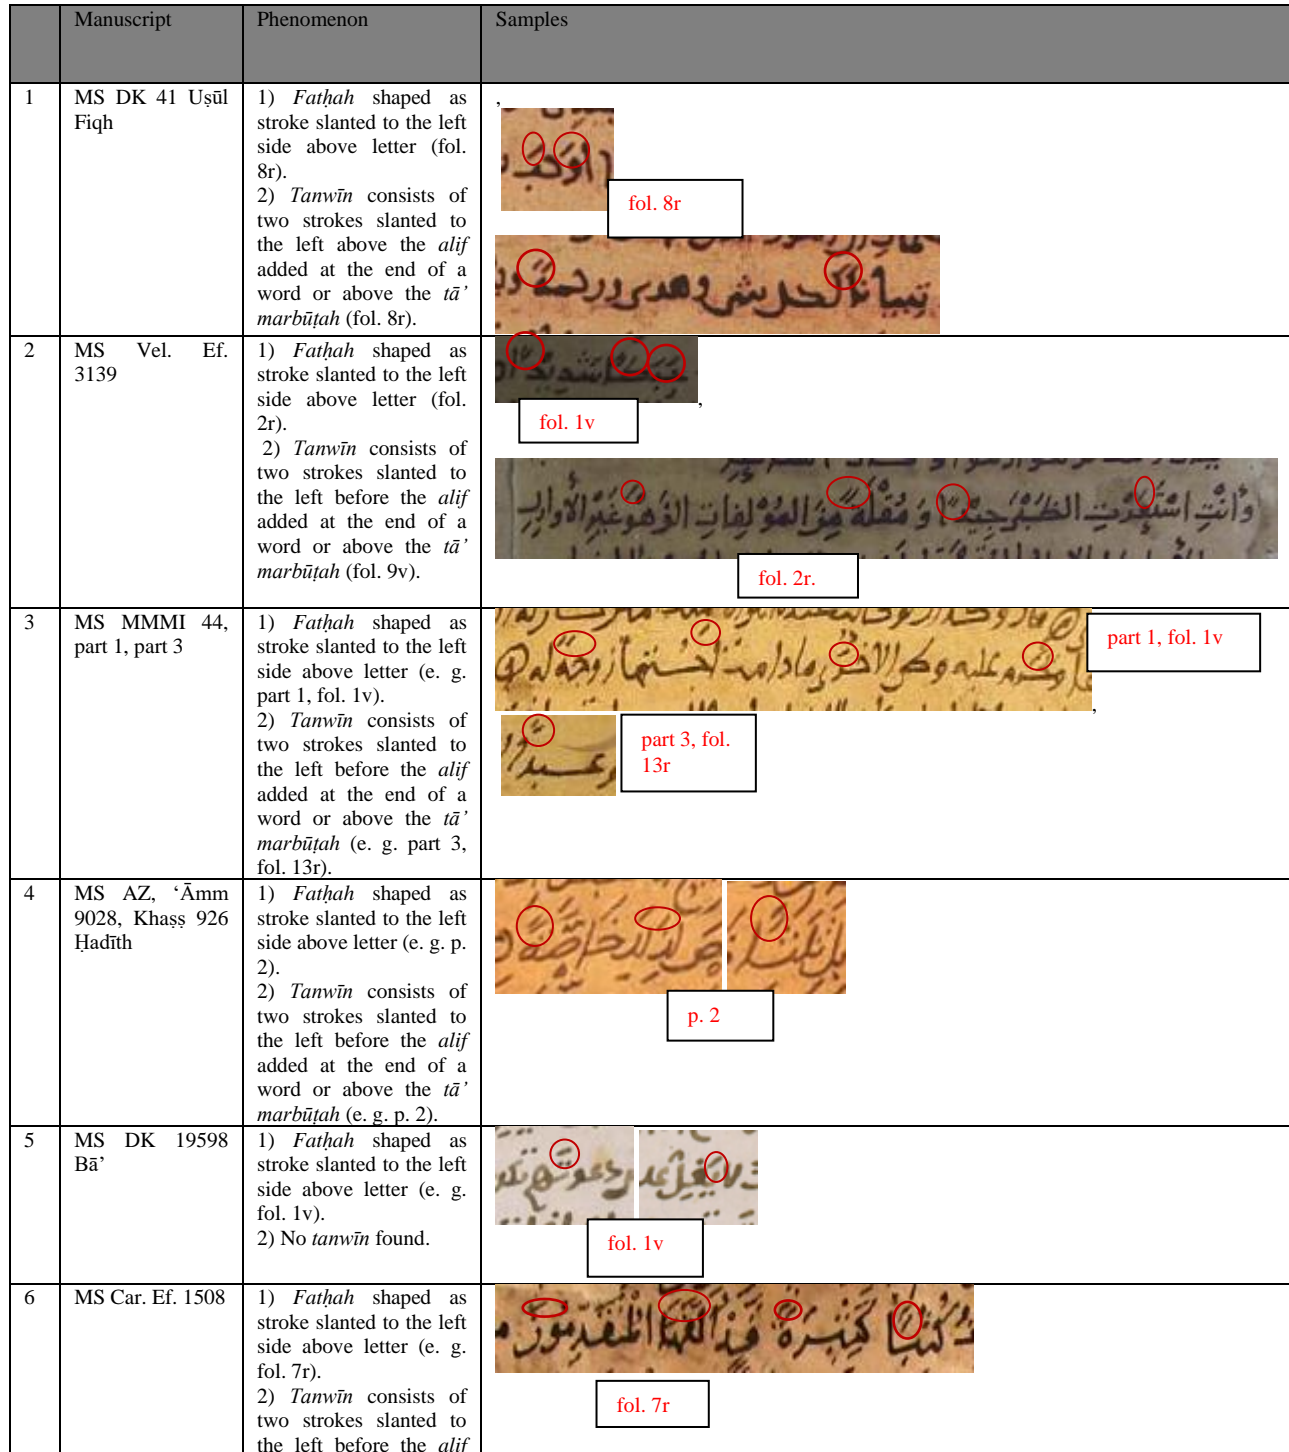 Manuscript Phenomenon Samples
1
MS DK 41 Uṣūl
Fiqh
1) Fatḥah shaped as
stroke slanted to the left
side above letter (fol.
8r).
2) Tanwīn consists of
two strokes slanted to
the left above the alif
added at the end of a
word or above the tā’
marbūṭah (fol. 8r).
,
fol. 8r
2
MS Vel. Ef.
3139
1) Fatḥah shaped as
stroke slanted to the left
side above letter (fol.
2r).
2) Tanwīn consists of
two strokes slanted to
the left before the alif
added at the end of a
word or above the tā’
marbūṭah (fol. 9v).
,
fol. 1v
fol. 2r.
3
MS MMMI 44,
part 1, part 3
1) Fatḥah shaped as
stroke slanted to the left
side above letter (e. g.
part 1, fol. 1v).
2) Tanwīn consists of
two strokes slanted to
the left before the alif
added at the end of a
word or above the tā’
marbūṭah (e. g. part 3,
fol. 13r).
part 1, fol. 1v
,
part 3, fol.
13r
4
MS AZ, ‘Āmm
9028, Khaṣṣ 926
Ḥadīth
1) Fatḥah shaped as
stroke slanted to the left
side above letter (e. g. p.
2).
2) Tanwīn consists of
two strokes slanted to
the left before the alif
added at the end of a
word or above the tā’
marbūṭah (e. g. p. 2).
p. 2
5
MS DK 19598
Bā’
1) Fatḥah shaped as
stroke slanted to the left
side above letter (e. g.
fol. 1v).
2) No tanwīn found.
fol. 1v
6
MS Car. Ef. 1508
1) Fatḥah shaped as
stroke slanted to the left
side above letter (e. g.
fol. 7r).
2) Tanwīn consists of
two strokes slanted to
the left before the alif
كُتُبًا كَثِيرَةً قَد
fol. 7r